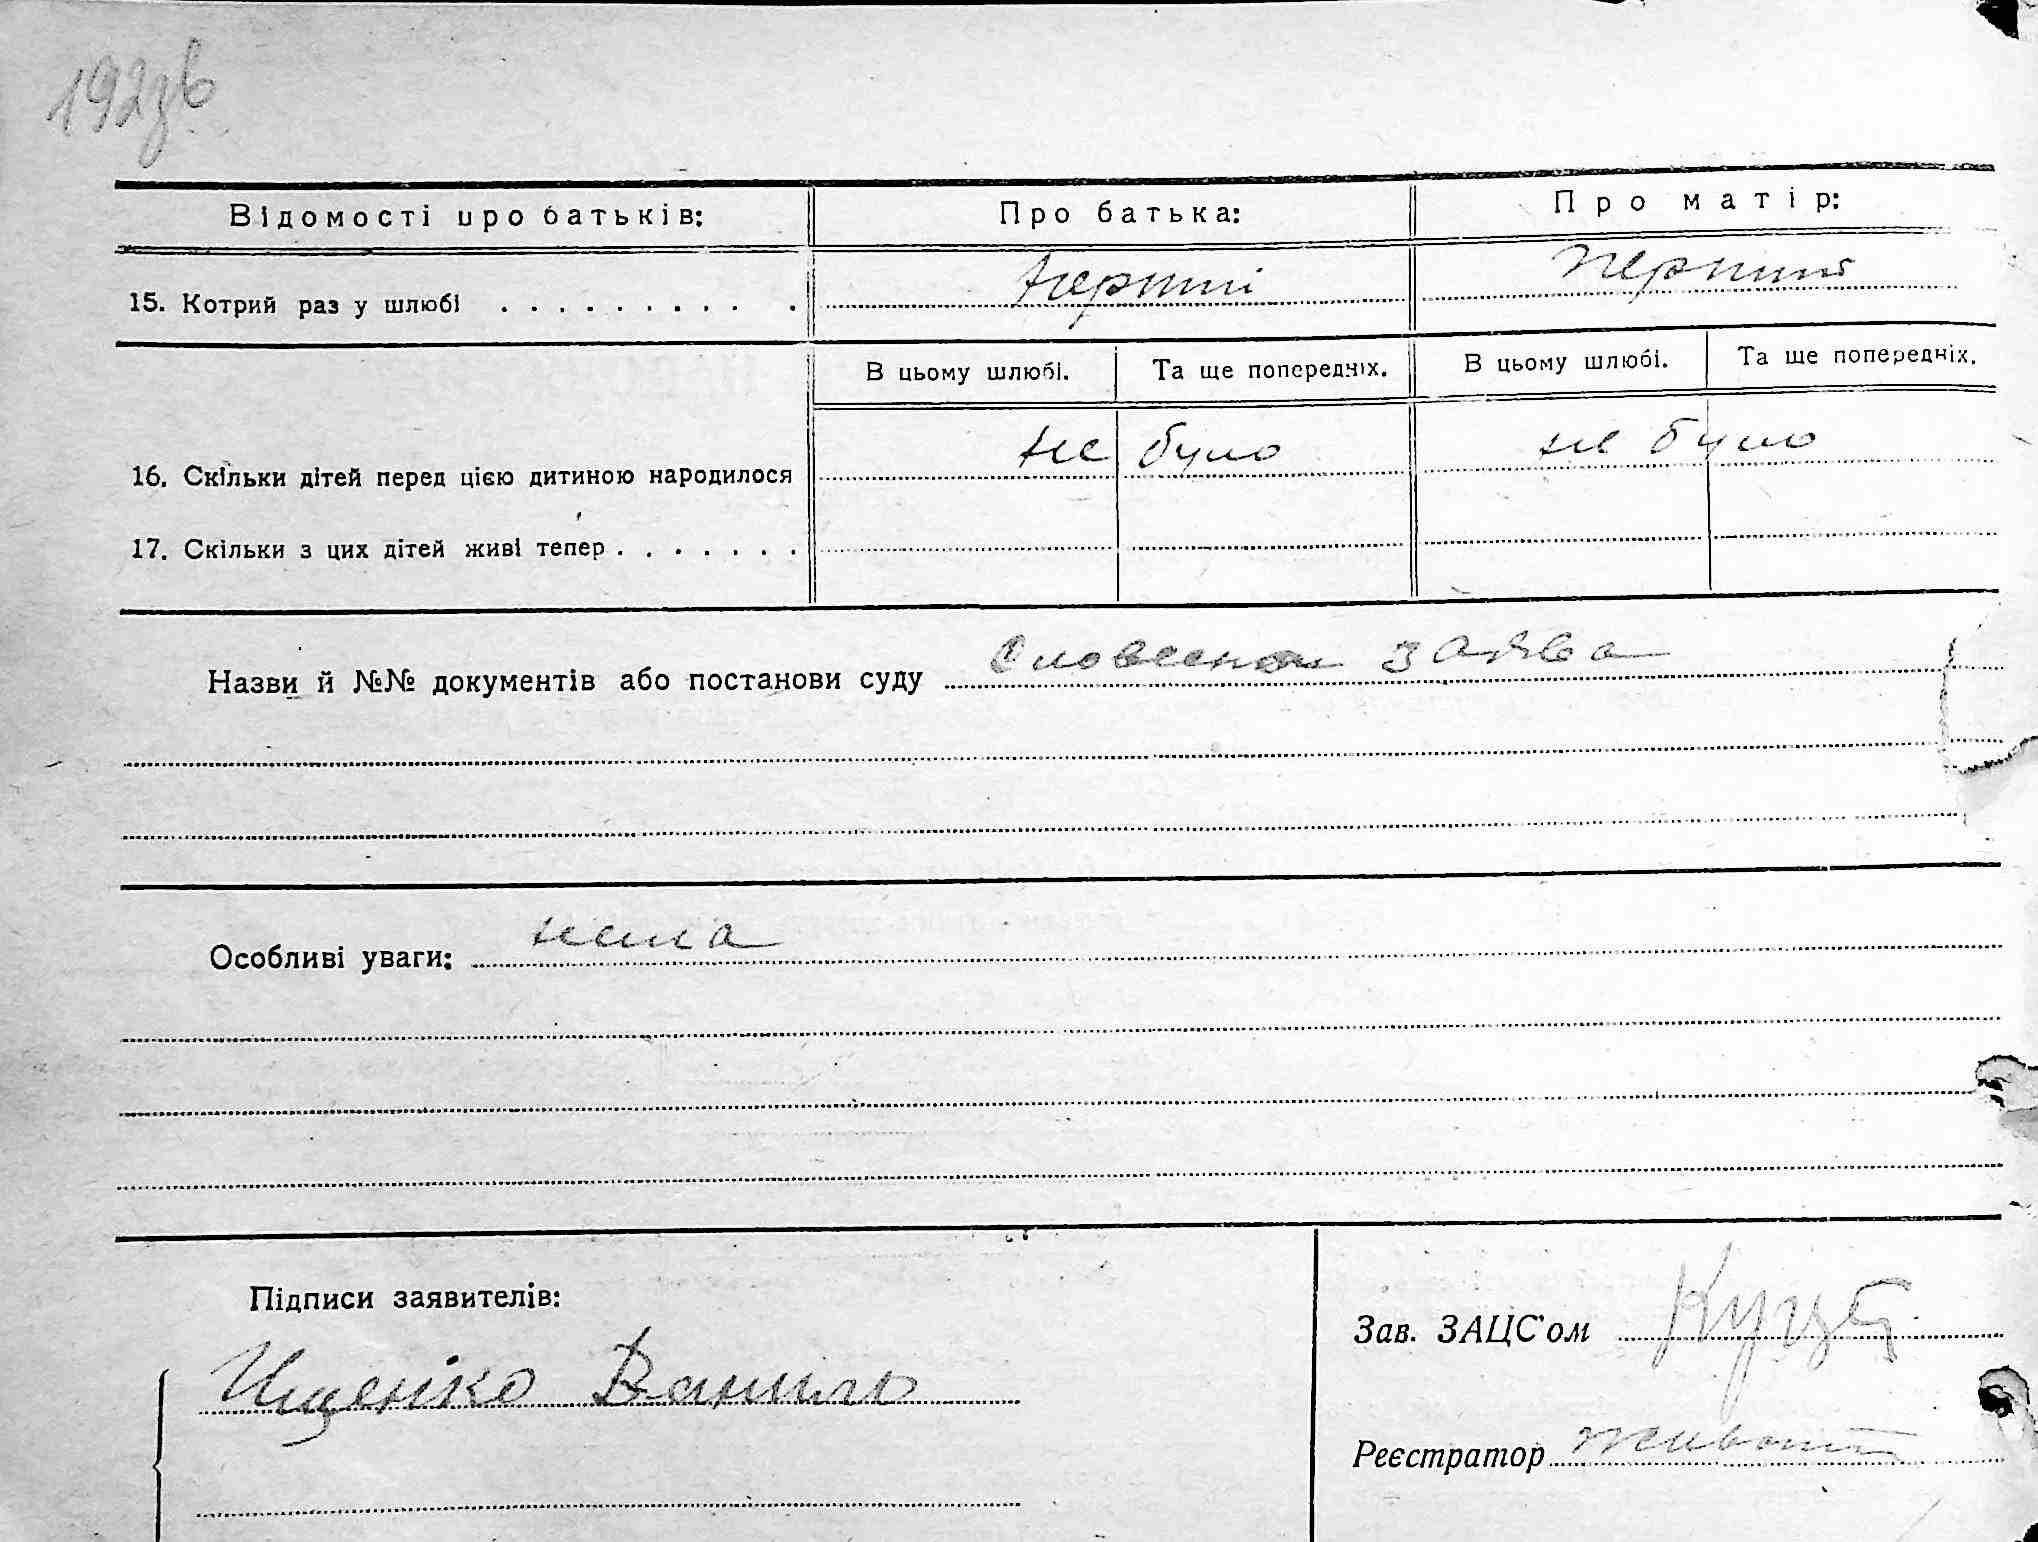 192зв
Відомості про батьків: Про батька: Про матір:
15. Котрий раз у шлюбі . . . . . . . . . . перший перший
В цьому шлюбі. Та ще попередніх. В цьому шлюбі. Та ще попередніх.
16. Скільки дітей перед цією дитиною народилося не було не було
17. Скільки з цих дітей живі тепер . . . . . . .
Назви й №№ документів або постанови суду Словесна заява
Особливі уваги: нема
Підписи заявителів:
Зав. ЗАЦС'ом
Іщенко Данило
Реєстратор